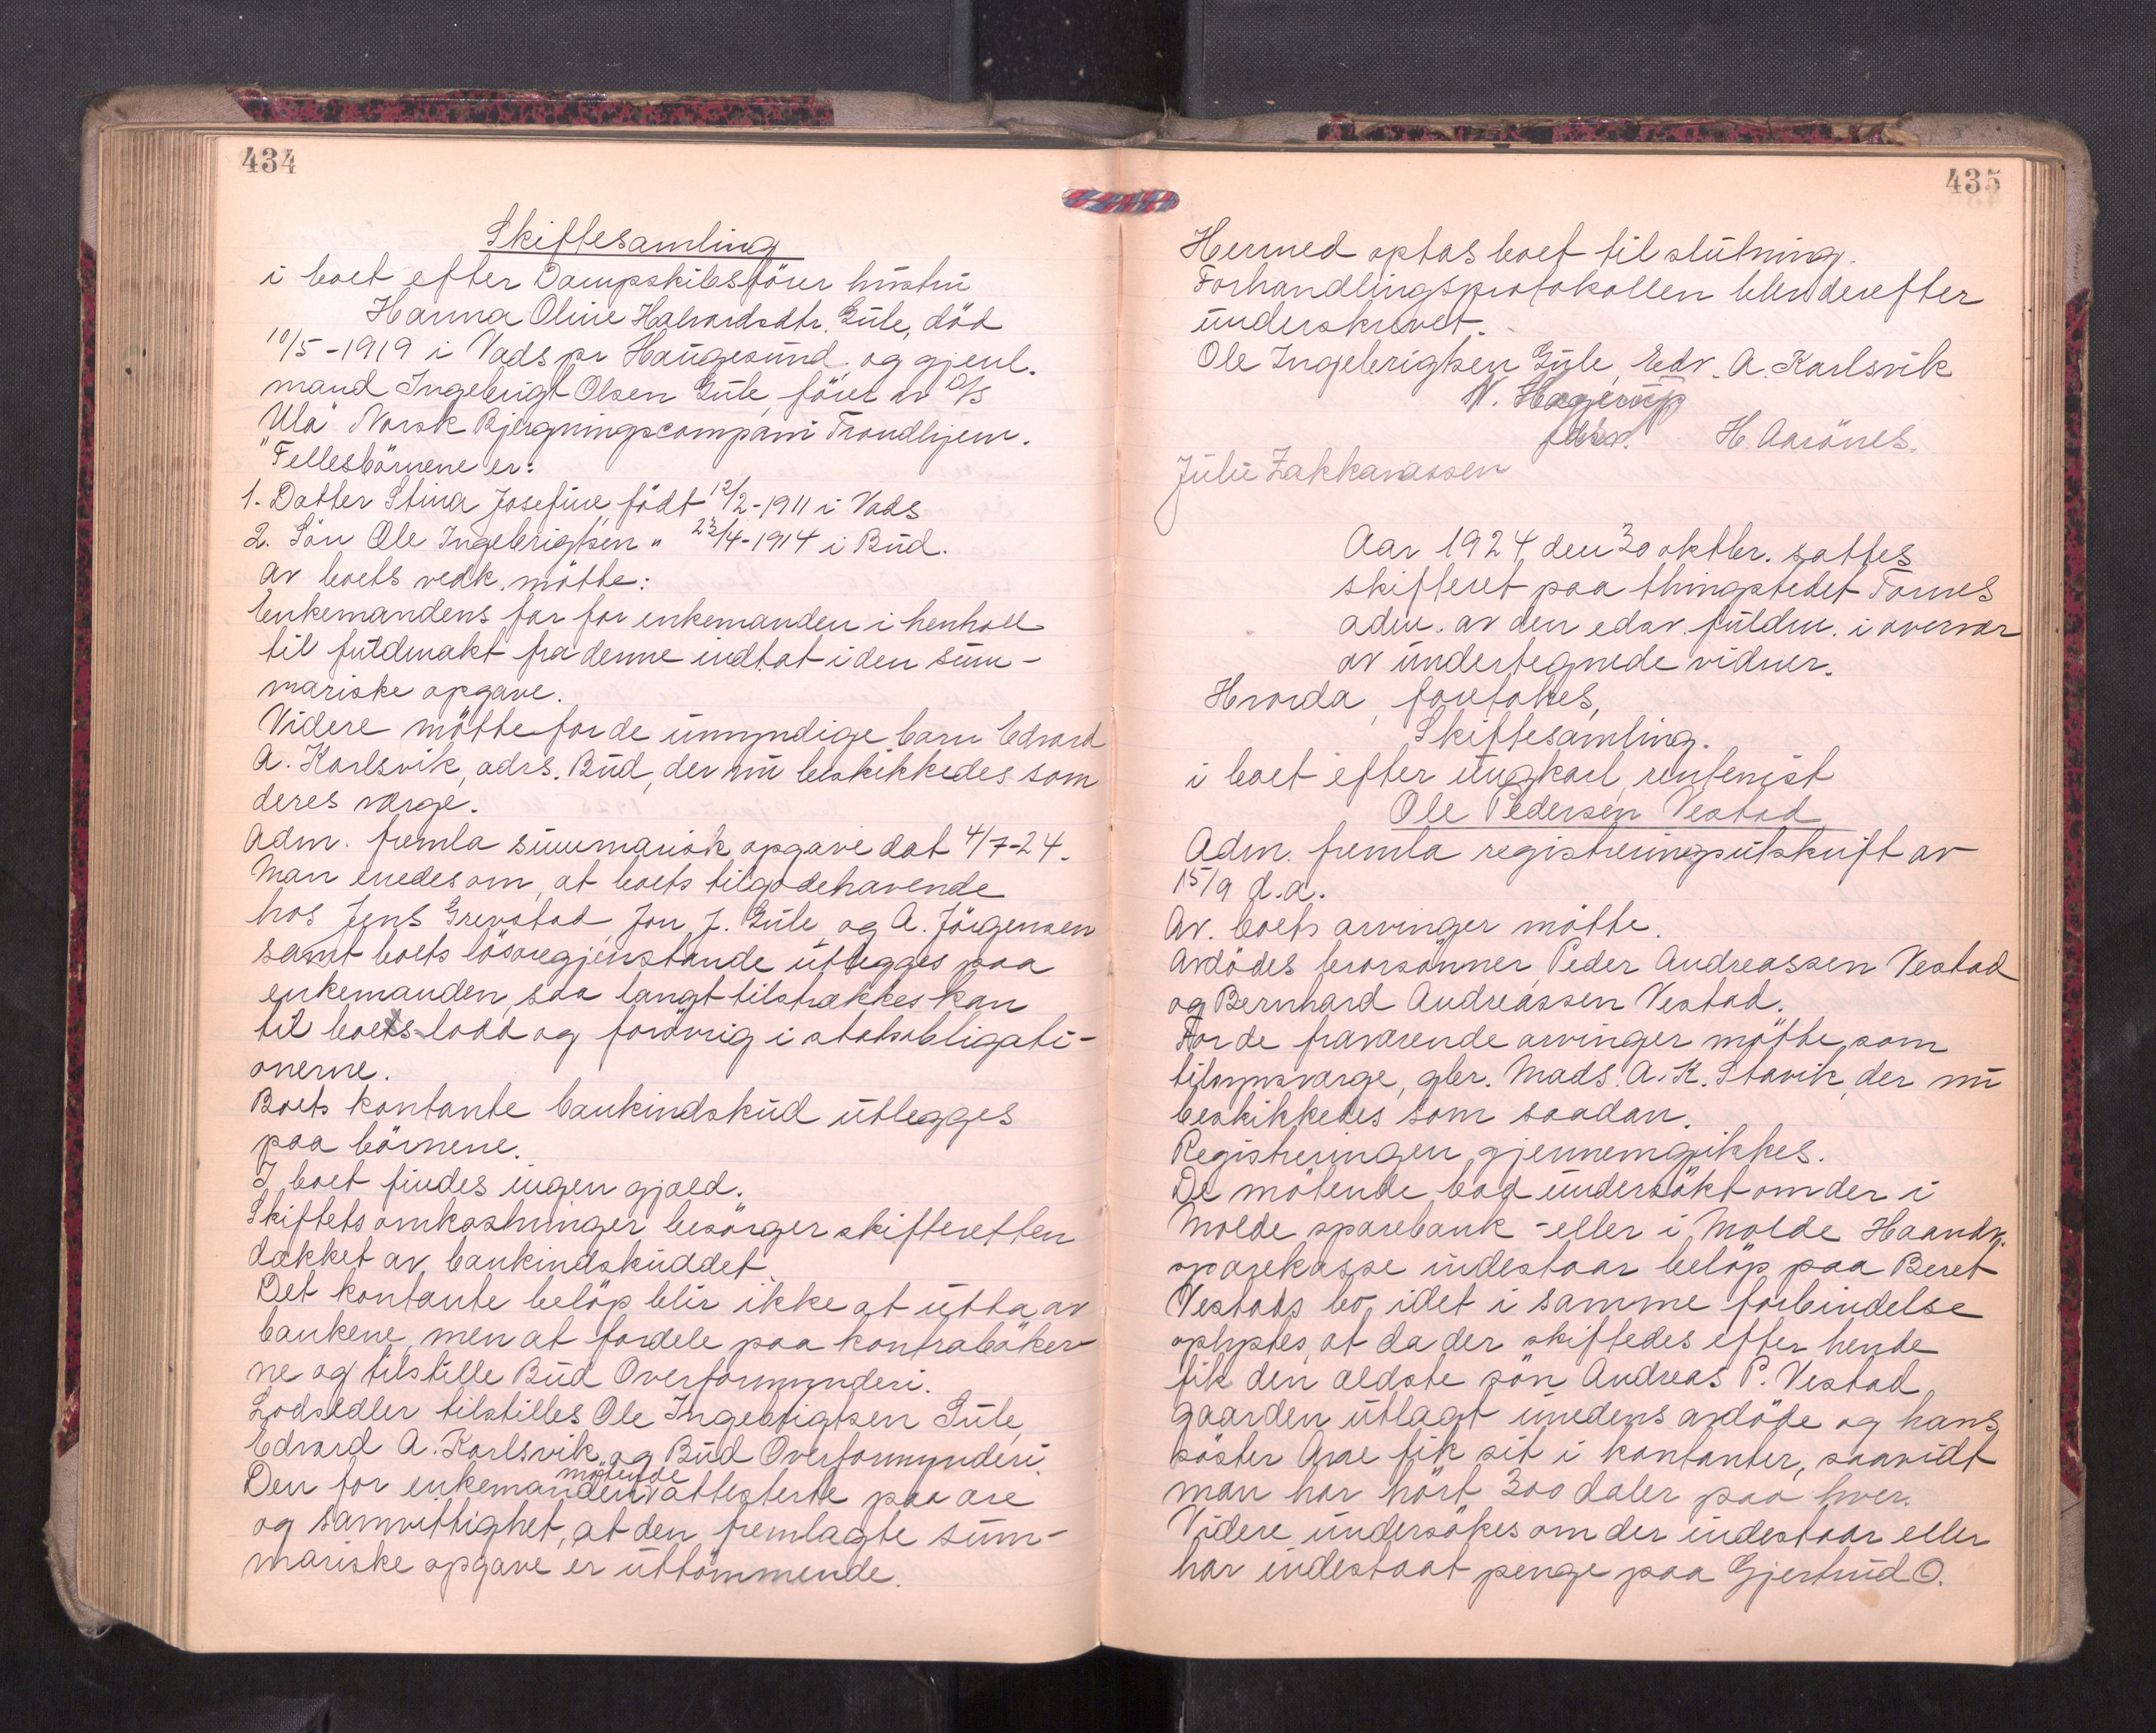 434
Skiftesamling
i boet efter Dampskibsförer hustru
Hanna Oline Halvardsdtr. Gule, död
10/5-1919 i Vads pr Haugesund, og gjenl.
mand Ingebrigt Olsen Gule, förer av D/S
"Ula" Norsk Bjergningscompani Trondhjem.
Fellesbörnene er:
1. Datter Stina Josefine, födt 12/2-1911 i Vads
2. Sön Ole Ingebrigtsen " 23/4-1914 i Bud.
Av boets vedk. mötte:
Enkemandens far for enkemanden i henhold
til fuldmakt fra denne indtat i den sum-
mariske opgave.
Videre mötte for de umyndige barn Edvard
A. Karlsvik, adrs. Bud, der nu beskikkedes som
deres verge.
Adm. fremla summarisk opgave dat 4/7-24.
Man enedes om, at boets tilgodehavende
hos Jens Grevstad, Jon J. Gule og A. Jörgensen
samt boets lösöregjenstande utlegges paa
enkemanden, saa langt tilstrekkes kan
til boets lodd og forövrig i statsobligati-
onerne.
Boets kontante bankindskud utlegges
paa börnene.
I boet findes ingen gjæld.
Skiftets omkostninger besörger skifteretten
dækket av bankindskuddet.
Det kontante belöp blir ikke at utta av
bankene, men at fordele paa kontraböker-
ne og tilstille Bud Overformynderi.
Lodsedler tilstilles Ole Ingebrigtsen Gule,
Edvard A. Karlsvik og Bud Overformynderi.
Den for enkemanden mötende attesterte paa ære
og samvittighet, at den fremlagte sum-
mariske opgave er uttömmende.
435
Hermed optas boet til slutning.
Forhandlingsprotokollen blev derefter
underskrevet.
Ole Ingebrigtsen Gule, Edv. A. Karlsvik
N. Hagerup
edsv. H. Aarönes.
Julie Zakkariassen
Aar 1924 den 30 oktbr. sattes
skifteret paa thingstedet Tornes
adm. av den edsv. fuldm. i overvær
av undertegnede vidner.
Hvorda foretokes,
Skiftesamling.
i boet efter ungkarl, rentenist
Ole Pedersen Vestad
Adm. fremla registreringsutskrift av
15/9 d.a.
Av. boets arvinger mötte.
Avdödes brorsönner Peder Andreassen Vestad
og Bernhard Andreassen Vestad.
For de fraværende arvinger mötte, som
tilsynsverge, gbr. Mads. A. K. Stavik, der nu
beskikkedes som saadan.
Registreringen gjennemgikkes.
De mötende bad undersökt om der i
Molde sparebank - eller i Molde Haandv.
sparekasse indestaar belöp paa Beret
Vestads bo, idet i samme forbindelse
oplystes, at da der skiftedes efter hende
fik den ældste sön Andreas P. Vestad
gaarden utlagt imedens avdöde og hans
söster Ane fik sit i kontanter, saavidt
man har hört 300 daler paa hver.
Videre undersökes om der indestaar eller
har indestaat penge paa Gjertrud O.